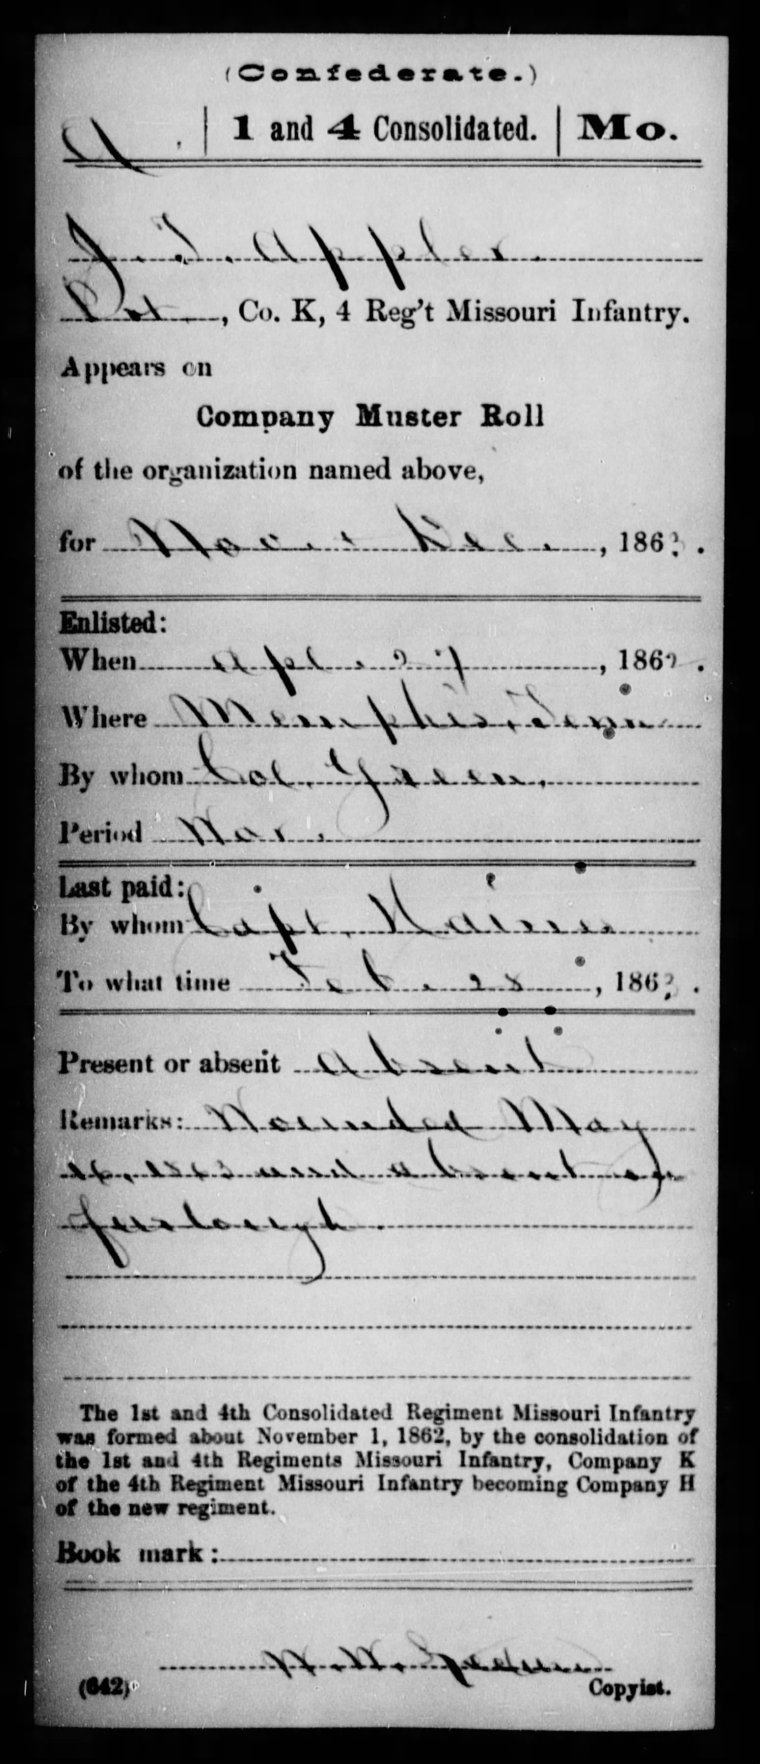 (Confederate.)
A | 1 and 4 Consolidated. | Mo.
J. T. Appler.
Pvt, Co. K, 4 Reg't Missouri Infantry.
Appears on
Company Muster Roll
of the organization named above,
for Nov. & Dec., 1863.
Enlisted:
When Apl. 27, 1862.
Where Memphis, Tenn
By whom Col. Green.
Period War.
Last paid:
By whom Capt.
To what time Feb. 28, 1863.
Present or absent Absent
Remarks: Wounded May
1863 and absent on
furlough.
The 1st and 4th Consolidated Regiment Missouri Infantry
was formed about November 1, 1862, by the consolidation of
the 1st and 4th Regiments Missouri Infantry, Company K
of the 4th Regiment Missouri Infantry becoming Company H
of the new regiment.
Book mark:
(642)
Copyist.